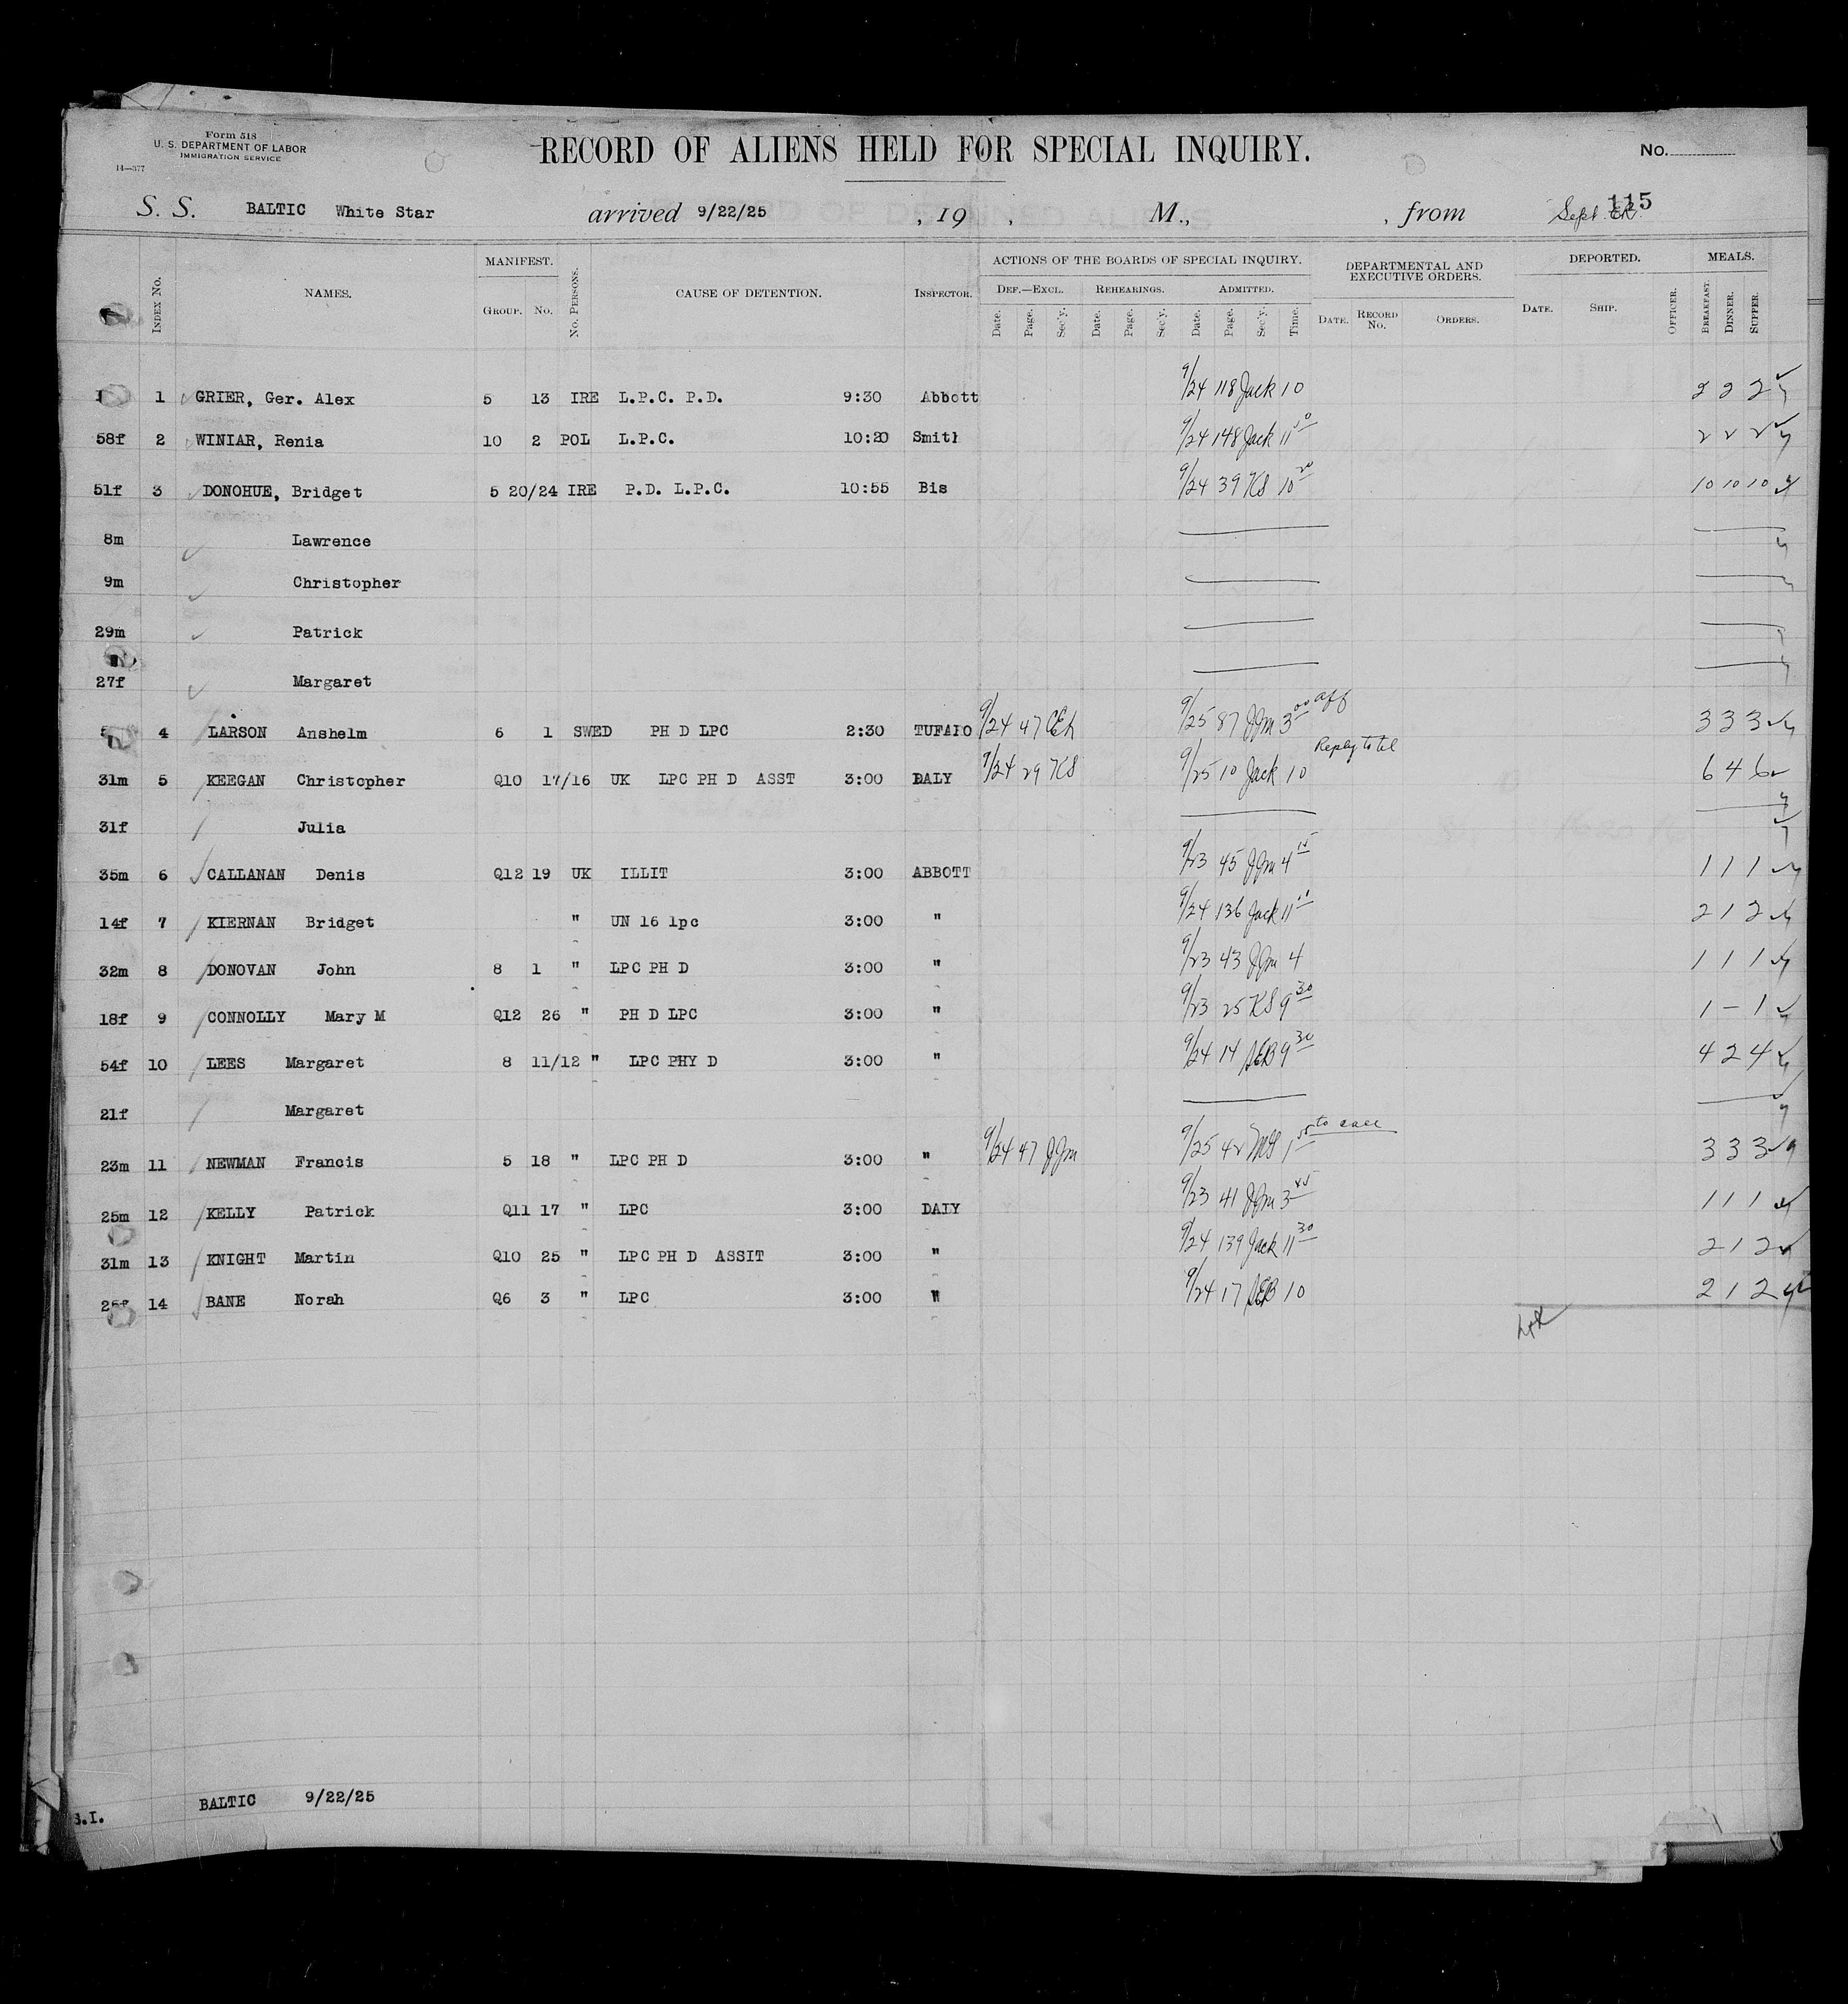 Form 518
U. S. DEPARTMENT OF LABOR
IMMIGRATION SERVICE
14—377
RECORD OF ALIENS HELD FOR SPECIAL INQUIRY.
No.
S. S. BALTIC White Star arrived 9/22/25 , 19 , M., , from Sept 115
INDEX NO. NAMES. MANIFEST. GROUP. NO. NO. PERSONS. CAUSE OF DETENTION. INSPECTOR. ACTIONS OF THE BOARDS OF SPECIAL INQUIRY. DEF.—EXCL. REHEARINGS. ADMITTED. DEPARTMENTAL AND EXECUTIVE ORDERS. DEPORTED. MEALS.
Date. Page. Sec'y. Date. Page. Sec'y. Date. Page. Sec'y. Time. DATE. RECORD NO. ORDERS. DATE. SHIP. OFFICER. BREAKFAST. DINNER. SUPPER.
1 GRIER, Ger. Alex 5 13 IRE L.P.C. P.D. 9:30 Abbott 9/24 118 Jack 10 2 2 2
58f 2 WINIAR, Renia 10 2 POL L.P.C. 10:20 Smith 9/24 148 Jack 11 2 2 2
51f 3 DONOHUE, Bridget 5 20/24 IRE P.D. L.P.C. 10:55 Bis 9/24 39 KS 10 20 10 10 10
8m Lawrence
9m Christopher
29m Patrick
27f Margaret
4 LARSON Anshelm 6 1 SWED PH D LPC 2:30 TUFAIO 9/24 47 CEh 9/25 87 JJm 3 00 aff 3 3 3
31m 5 KEEGAN Christopher Q10 17/16 UK LPC PH D ASST 3:00 DALY 9/24 29 KS 9/25 10 Jack 10 Reply to tel 6 4 6
31f Julia
35m 6 CALLANAN Denis Q12 19 UK ILLIT 3:00 ABBOTT 9/23 45 JJm 4 15 1 1 1
14f 7 KIERNAN Bridget " UN 16 lpc 3:00 " 9/24 136 Jack 11 2 1 2
32m 8 DONOVAN John 8 1 " LPC PH D 3:00 " 9/23 43 JJm 4 1 1 1
18f 9 CONNOLLY Mary M Q12 26 " PH D LPC 3:00 " 9/23 25 KS 9 30 1 – 1
54f 10 LEES Margaret 8 11/12 " LPC PHY D 3:00 " 9/24 14 SEB 9 30 4 2 4
21f Margaret
23m 11 NEWMAN Francis 5 18 " LPC PH D 3:00 " 9/24 47 JJm 9/25 42 1 to call 3 3 3
25m 12 KELLY Patrick Q11 17 " LPC 3:00 DALY 9/23 41 JJm 3 45 1 1 1
31m 13 KNIGHT Martin Q10 25 " LPC PH D ASSIT 3:00 " 9/24 139 Jack 11 30 2 1 2
14 BANE Norah Q6 3 " LPC 3:00 " 9/24 17 SEB 10 2 1 2
BALTIC 9/22/25
S.I.